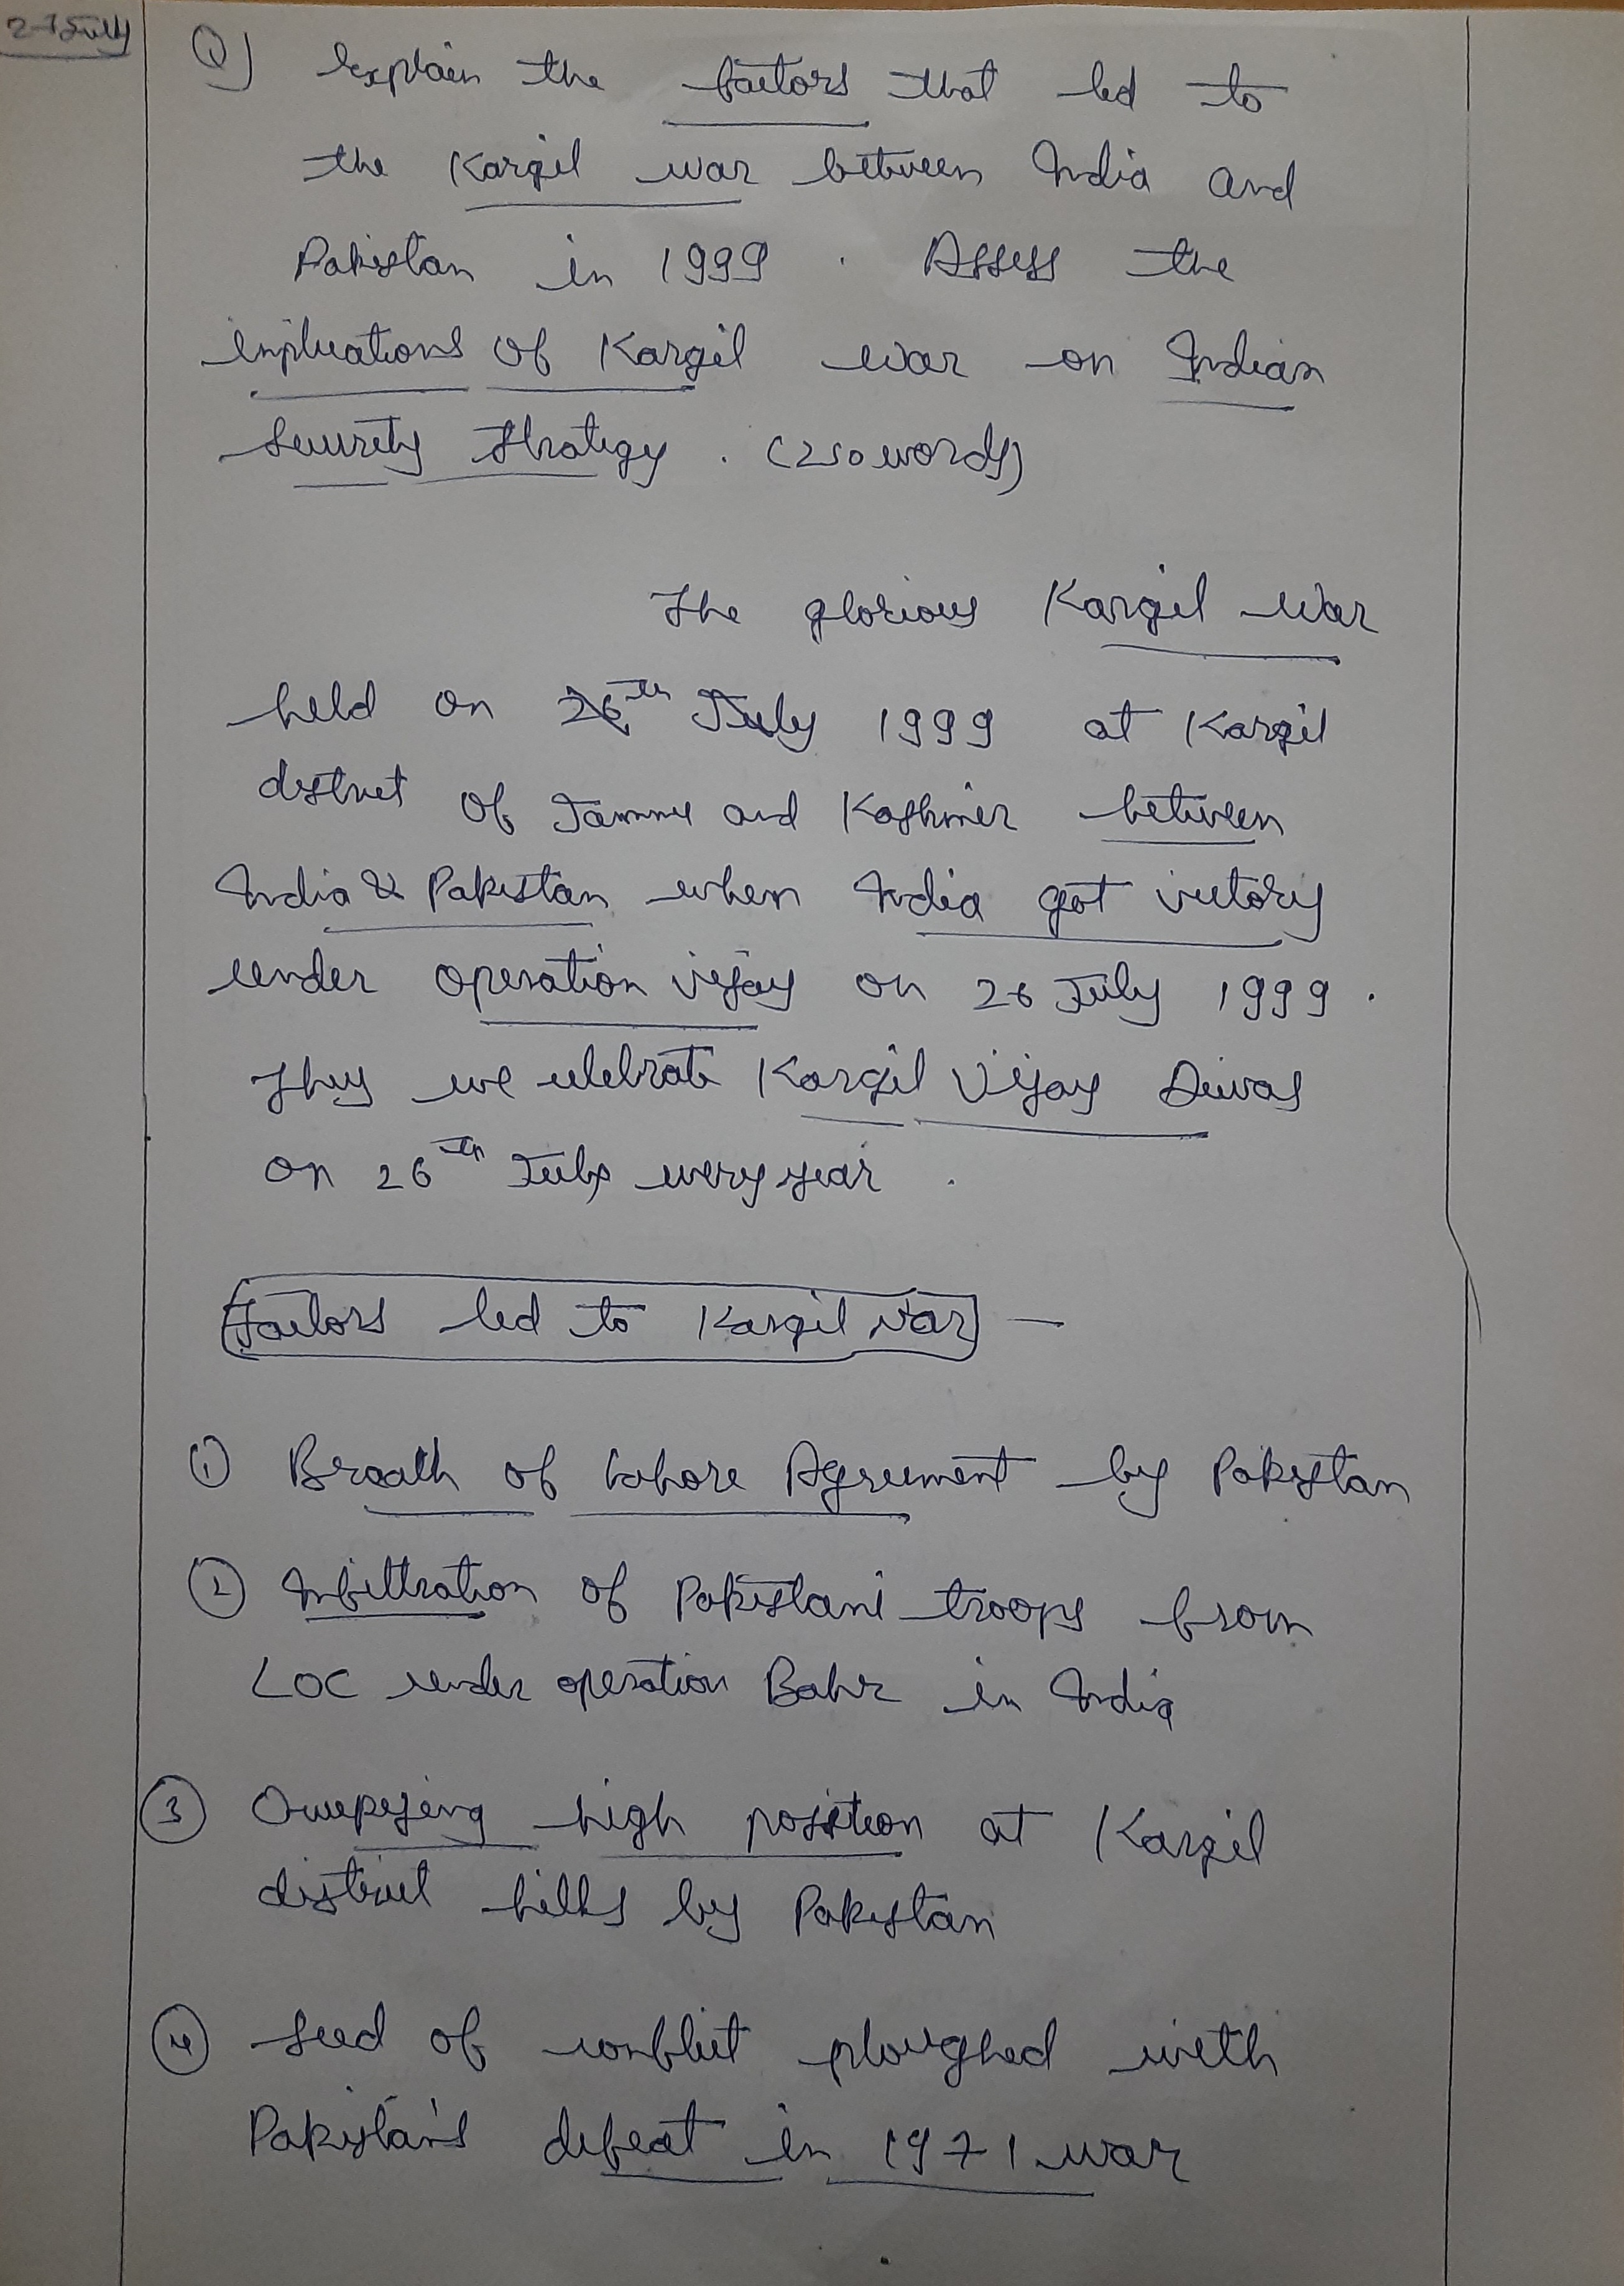 27 July
Q) Explain the factors that led to
the Kargil war between India and
Pakistan in 1999. Assess the
implications of Kargil war on Indian
Security Strategy. (250 words)
The glorious Kargil War
held on July 1999 at Kargil
district of Jammu and Kashmir between
India & Pakistan when India got victory
under operation vijay on 26 July 1999.
Thus we celebrate Kargil Vijay Diwas
on 26th July every year.
Factors led to Kargil War —
① Breach of Lahore Agreement by Pakistan
② Infiltration of Pakistani troops from
LOC under operation Badr in India
③ Occupying high position at Kargil
district hills by Pakistan
④ Seed of conflict ploughed with
Pakistan's defeat in 1971 war